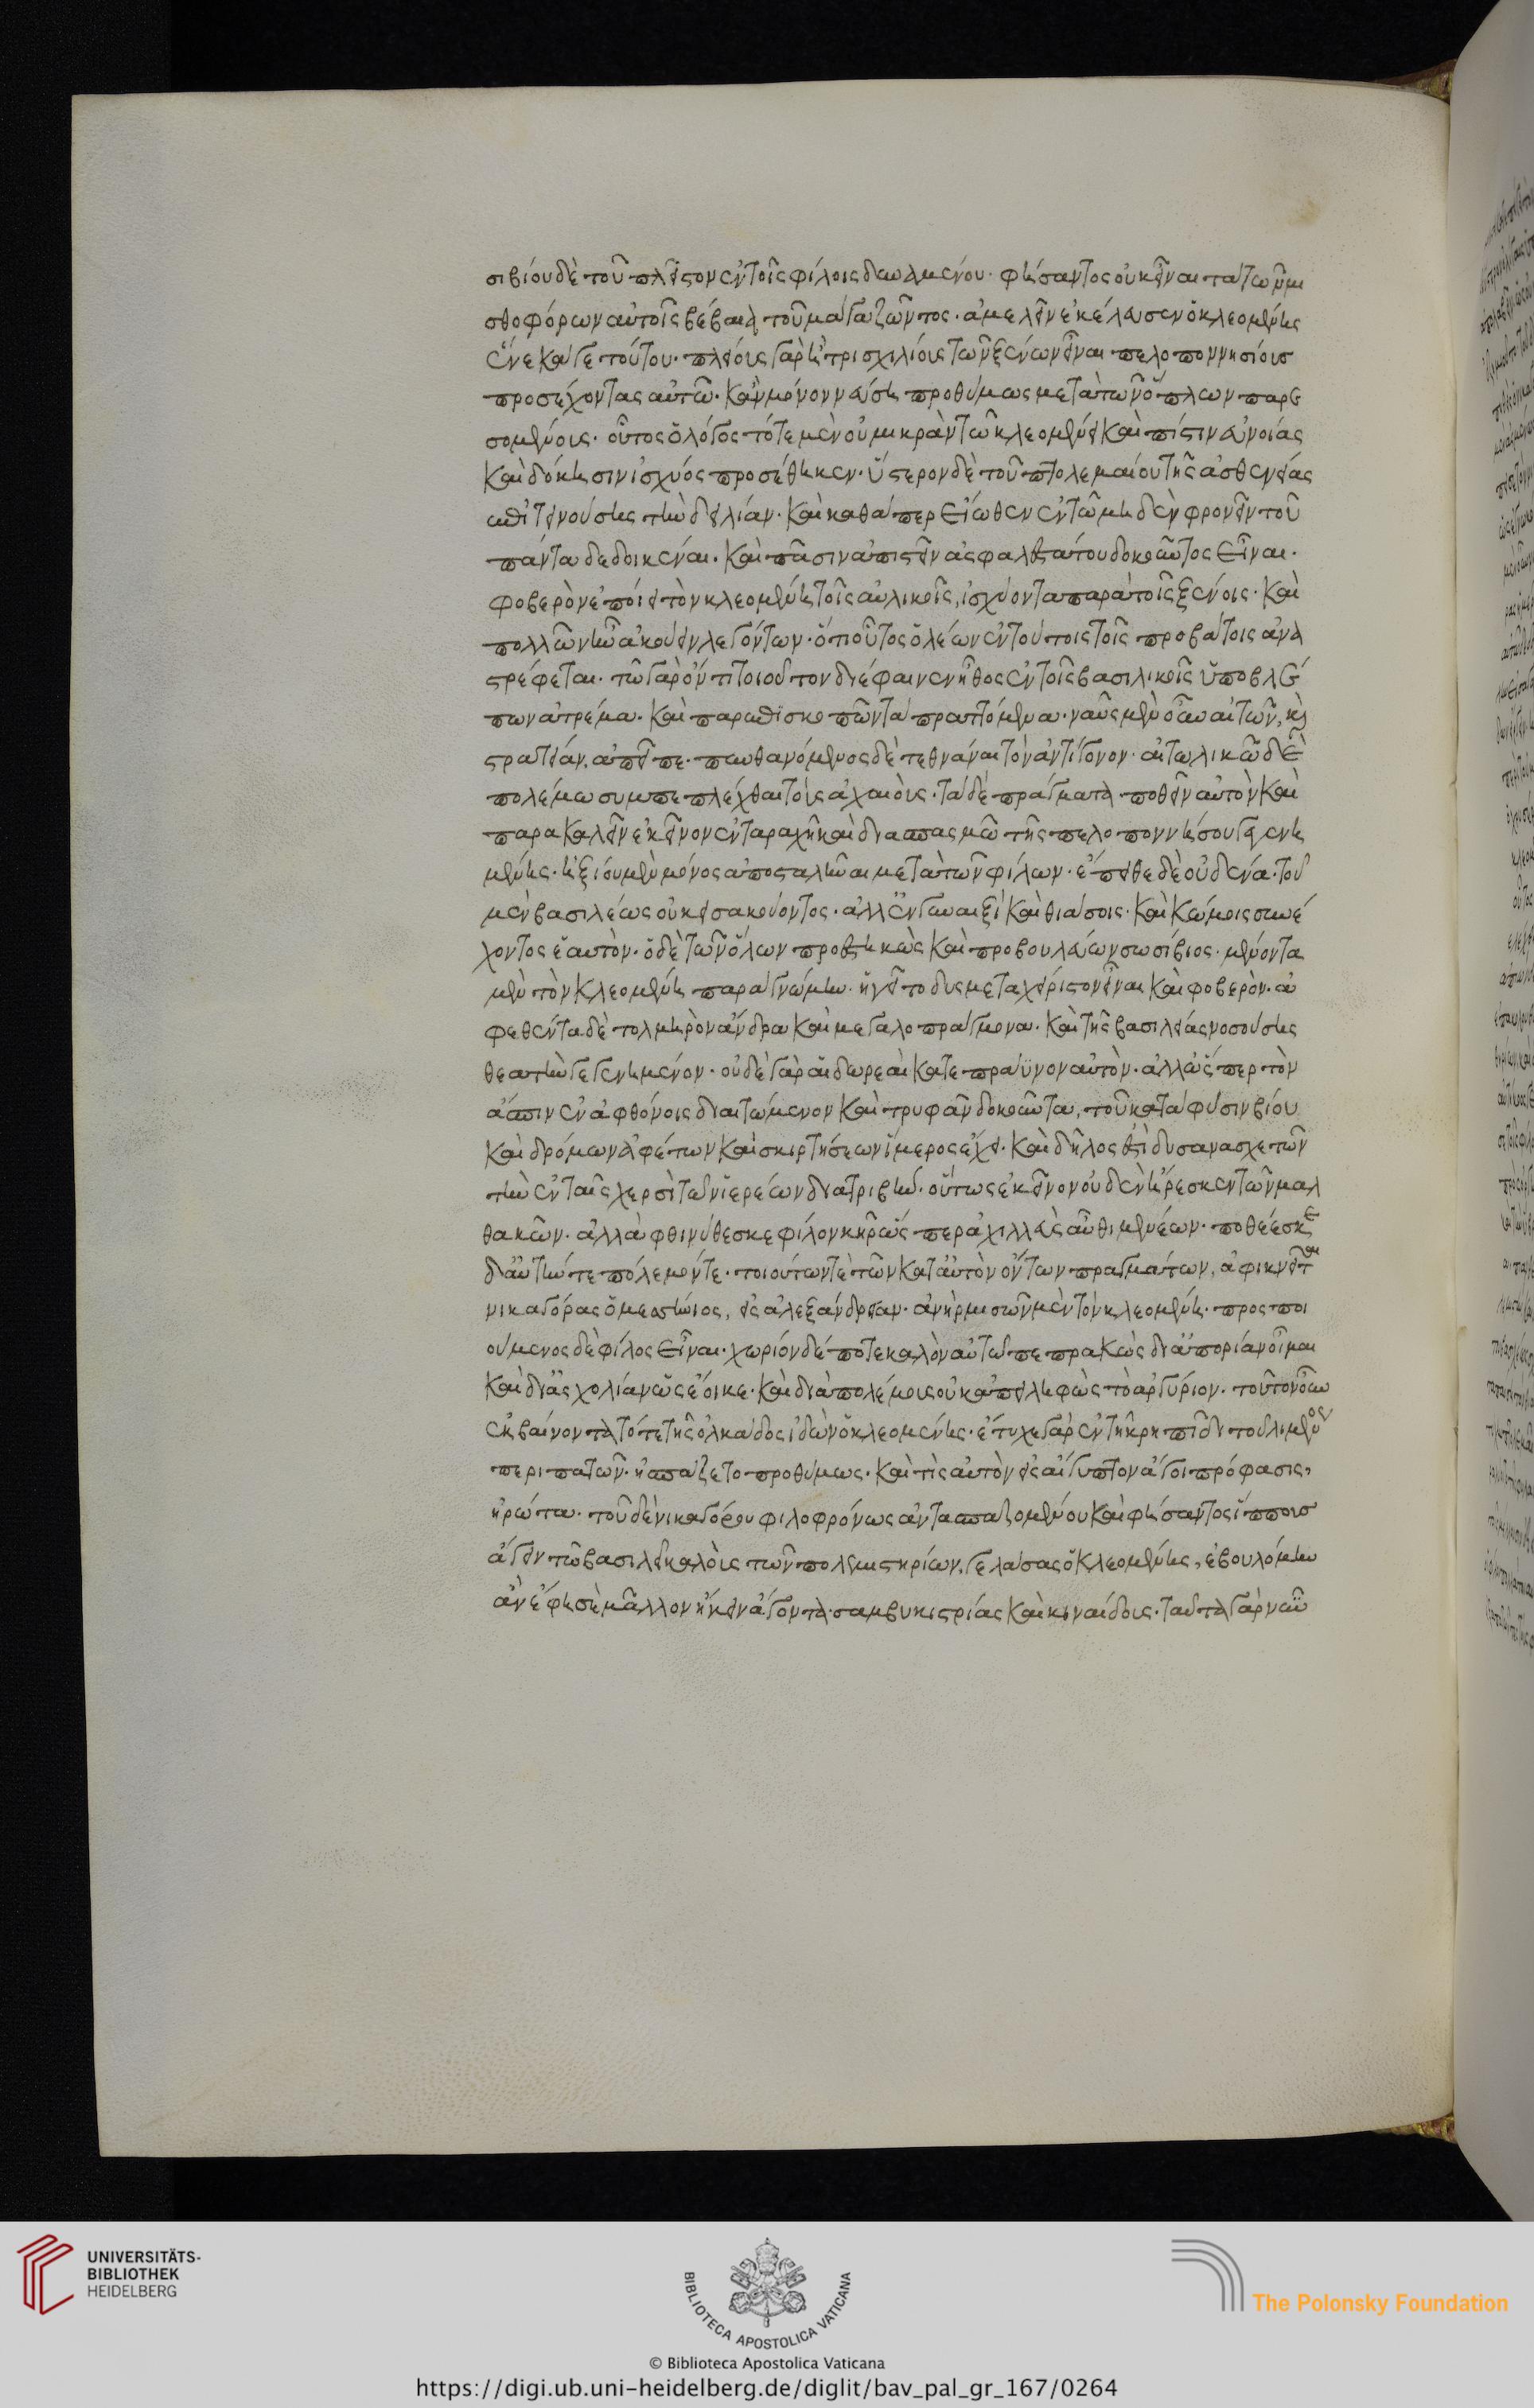 σιβίου δὲ τοῦ πλεῖστον ἐν τοῖς φίλοις δυναμένου· φήσαντος οὐκ εἶναι τὰ τῶν μι
σθοφόρων αὐτοῖς βέβαια τοῦ μάγα ζῶντος· ἀμελεῖν ἐκέλευσεν ὁ κλεομένης
ἕνεκά γε τούτου· πλείους γὰρ ἢ τρισχιλίους τῶν ξένων εἶναι πελοποννησίους
προσέχοντας αὐτῶ· κἂν μόνον νεύση προθύμως μετὰ τῶν ὅπλων παρε
σομένους· οὗτος ὁ λόγος τότε μὲν οὐ μικρὰν τῶ κλεομένει καὶ πίστιν εὐνοίας
καὶ δόκησιν ἰσχύος προσέθηκεν· ὕστερον δὲ τοῦ πτολεμαίου τῆς ἀσθενείας
ἐπιτεινούσης τὴν δειλίαν· καὶ καθάπερ εἴωθεν ἐν τῶ μηδὲν φρονεῖν τοῦ
πάντα δεδοικέναι· καὶ πᾶσιν ἀπιστεῖν ἀσφαλεστάτου δοκοῦντος εἶναι·
φοβερὸν ἐποίει τὸν κλεομένη τοῖς αὐλικοῖς, ἰσχύοντα παρὰ τοῖς ξένοις· καὶ
πολλῶν ἦν ἀκούειν λεγόντων· ὅτι οὗτος ὁ λέων ἐν τούτοις τοῖς προβάτοις ἀνα
στρέφεται· τῶ γὰρ ὄντι τοιοῦτον διέφαινεν ἦθος ἐν τοῖς βασιλικοῖς ὑποβλέ
πων ἀτρέμα· καὶ παρεπισκοπῶν τὰ πραττόμενα· ναῦς μὲν οὖν αἰτῶν, καὶ
στρατιάν, ἀπεῖπε· πυνθανόμενος δὲ τεθνάναι τὸν ἀντίγονον· αἰτωλικῶ δὲ
πολέμω συμπεπλέχθαι τοὺς ἀχαιοὺς· τὰ δὲ πράγματα ποθεῖν αὐτὸν καὶ
παρακαλεῖν ἐκεῖνον ἐν ταραχῆ καὶ διασπασμῶ τῆς πελοποννήσου γεγενη
μένης· ἠξίου μὲν μόνος ἀποσταλῆναι μετὰ τῶν φίλων· ἔπειθε δὲ οὐδένα· τοῦ
μὲν βασιλέως οὐκ εἰσακούοντος· ἀλλ ἐν γυναιξὶ καὶ θιάσοις· καὶ κώμοις συνέ
χοντος ἑαυτὸν· ὁ δὲ τῶν ὅλων προεστηκὼς καὶ προβουλεύων σωσίβιος· μένοντα
μὲν τὸν κλεομένη παρὰ γνώμην· ἡγεῖτο δυσμεταχείριστον εἶναι καὶ φοβερὸν· ἀ
φεθέντα δὲ τολμηρὸν ἄνδρα καὶ μεγαλοπράγμονα· καὶ τῆς βασιλείας νοσούσης
θεατὴν γεγενημένον· οὐδὲ γὰρ αἱ δωρεαὶ κατεπράϋνον αὐτὸν· ἀλλ ὥσπερ τὸν
ἄπιν ἐν ἀφθόνοις διαιτώμενον καὶ τρυφᾶν δοκοῦντα, τοῦ κατὰ φύσιν βίου
καὶ δρόμων ἀφέτων καὶ σκιρτήσεων ἵμερος ἔχει· καὶ δῆλος ἐστὶ δυσανασχετῶν
τὴν ἐν ταῖς χερσὶ τῶν ἱερέων διατριβὴν· οὕτως ἐκεῖνον οὐδὲν ἤρεσκεν τῶν μαλ
θακῶν· ἀλλὰ φθινύθεσκε φίλον κῆρ ὥσπερ ἀχιλλεὺς αὖθι μένέων· ποθέεσκε
δ ἀϋτήν τε πόλεμόν τε· τοιούτων τὲ τῶν κατ αὐτὸν ὄντων πραγμάτων, ἀφικνεῖται
νικαγόρας ὁ μεσσήνιος, εἰς ἀλεξάνδρειαν· ἀνὴρ μισῶν μὲν τὸν κλεομένη· προσποι
ούμενος δὲ φίλος εἶναι· χωρίον δέ ποτε καλὸν αὐτῶ πεπρακὼς δι ἀπορίαν οἶμαι
καὶ δι ἀσχολίαν ὡς ἔοικε· καὶ διὰ πολέμους οὐκ ἀπειληφὼς τὸ ἀργύριον· τοῦτον οὖν
ἐκβαίνοντα τότε τῆς ὁλκάδος ἰδὼν ὁ κλεομένης· ἔτυχε γὰρ ἐν τῆ κρηπῖδι τοῦ λιμένος
περιπατῶν· ἠσπάζετο προθύμως· καὶ τὶς αὐτὸν εἰς αἴγυπτον ἄγοι πρόφασις,
ἠρώτα· τοῦ δὲ νικαγόρου φιλοφρόνως ἀντασπαζομένου καὶ φήσαντος ἵππους
ἄγειν τῶ βασιλεῖ καλοὺς τῶν πολεμιστηρίων, γελάσας ὁ κλεομένης, ἐβουλόμην
ἂν ἔφη σὲ μᾶλλον ἥκειν ἄγοντα σαμβυκιστρίας καὶ κιναίδους· ταῦτα γὰρ νῦν
UNIVERSITÄTS-
BIBLIOTHEK
HEIDELBERG
BIBLIOTECA APOSTOLICA VATICANA
The Polonsky Foundation
© Biblioteca Apostolica Vaticana
https://digi.ub.uni-heidelberg.de/diglit/bav_pal_gr_167/0264